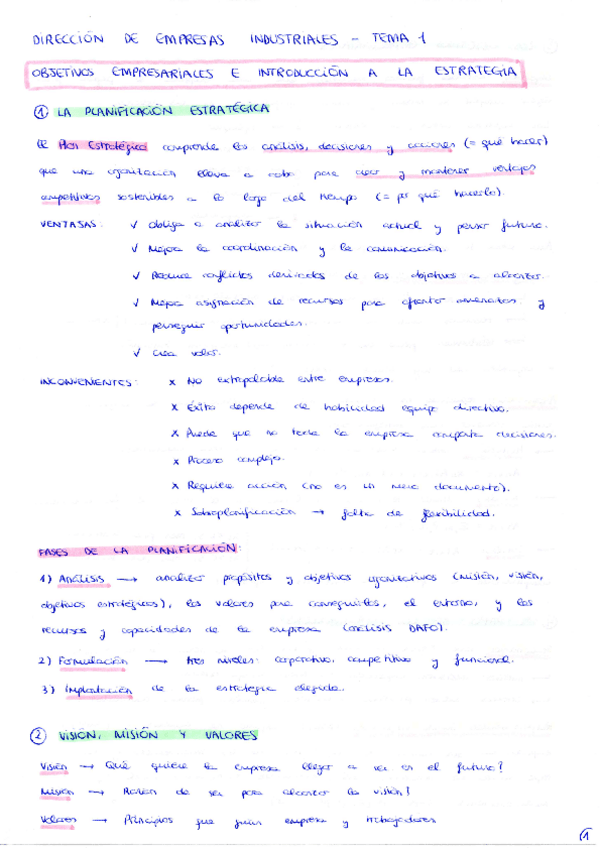 DIRECCIÓN DE EMPRESAS INDUSTRIALES - TEMA 1
OBJETIVOS EMPRESARIALES E INTRODUCCIÓN A LA ESTRATEGIA
① LA PLANIFICACIÓN ESTRATÉGICA
El Plan Estratégico comprende los análisis, decisiones y acciones (= qué hacer)
que una organización lleva a cabo para crear y mantener ventajas
competitivas sostenibles a lo largo del tiempo (= por qué hacerlo).
VENTAJAS: ✓ Obliga a analizar la situación actual y pensar futuro.
✓ Mejora la coordinación y la comunicación.
✓ Reduce conflictos derivados de los objetivos a alcanzar.
✓ Mejora asignación de recursos para afrontar amenazas y
perseguir oportunidades.
✓ Crea valor.
INCONVENIENTES: x No extrapolable entre empresas.
x Éxito depende de habilidad equipo directivo.
x Puede que no toda la empresa comparta decisiones.
x Proceso complejo.
x Requiere acción (no es un mero documento).
x Sobreplanificación → falta de flexibilidad.
FASES DE LA PLANIFICACIÓN:
1) Análisis → analizar propósitos y objetivos organizativos (misión, visión,
objetivos estratégicos), los valores para conseguirlos, el entorno, y los
recursos y capacidades de la empresa (análisis DAFO).
2) Formulación → tres niveles: corporativo, competitivo y funcional.
3) Implantación de la estrategia elegida.
② VISIÓN, MISIÓN Y VALORES
Visión → Qué quiere la empresa llegar a ser en el futuro?
Misión → Razón de ser para alcanzar la visión?
Valores → Principios que guían empresa y trabajadores
1